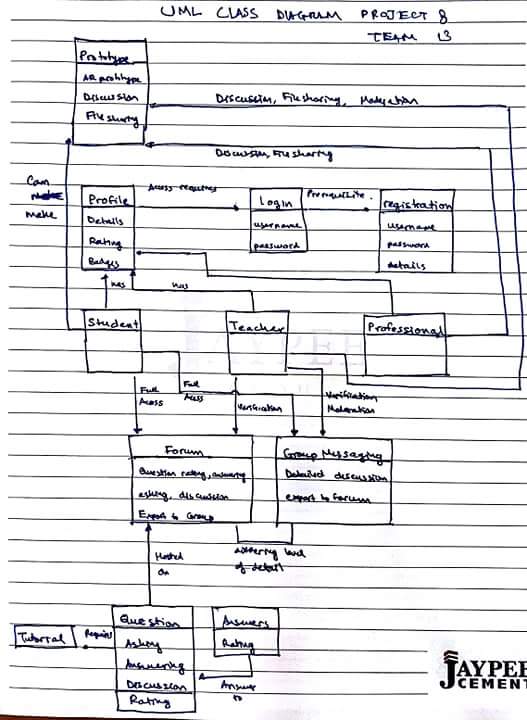 UML CLASS DIAGRAM PROJECT 8
TEAM 13
Prototype
AR prototype
Discussion
File sharing
Discussion, File sharing, Moderation
Discussion, File sharing
Can
make
make
Profile
Details
Rating
Badges
Access requires
Login
username
password
Prerequisite.
registration
username
password
details
has
has
Student
Teacher
Professional
JAYPEE
Full
Access
Full
Access
Verification
Verification
Moderation
Forum
Question rating, answering
asking, discussion
Export to Group
Group Messaging
Detailed discussion
export to forum
differing level
of detail
Hosted
on
Tutorial
Requires
Question
Asking
Answering
Discussion
Rating
Answers
Rating
Answer
to
JAYPEE
CEMENT